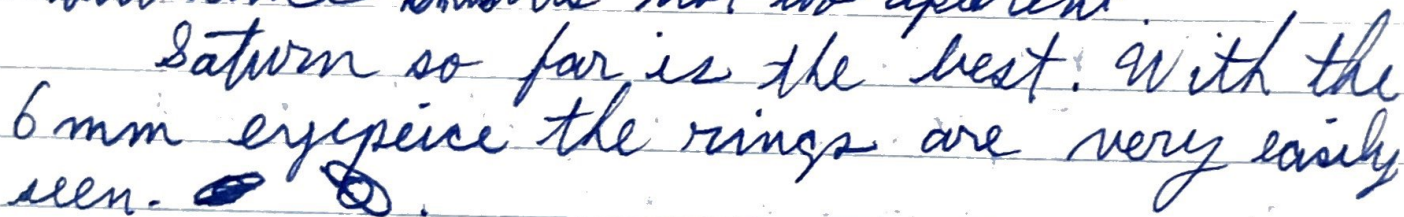 not so
Saturn so far is the best. With the
6mm eyepeice the rings are very easily
seen.